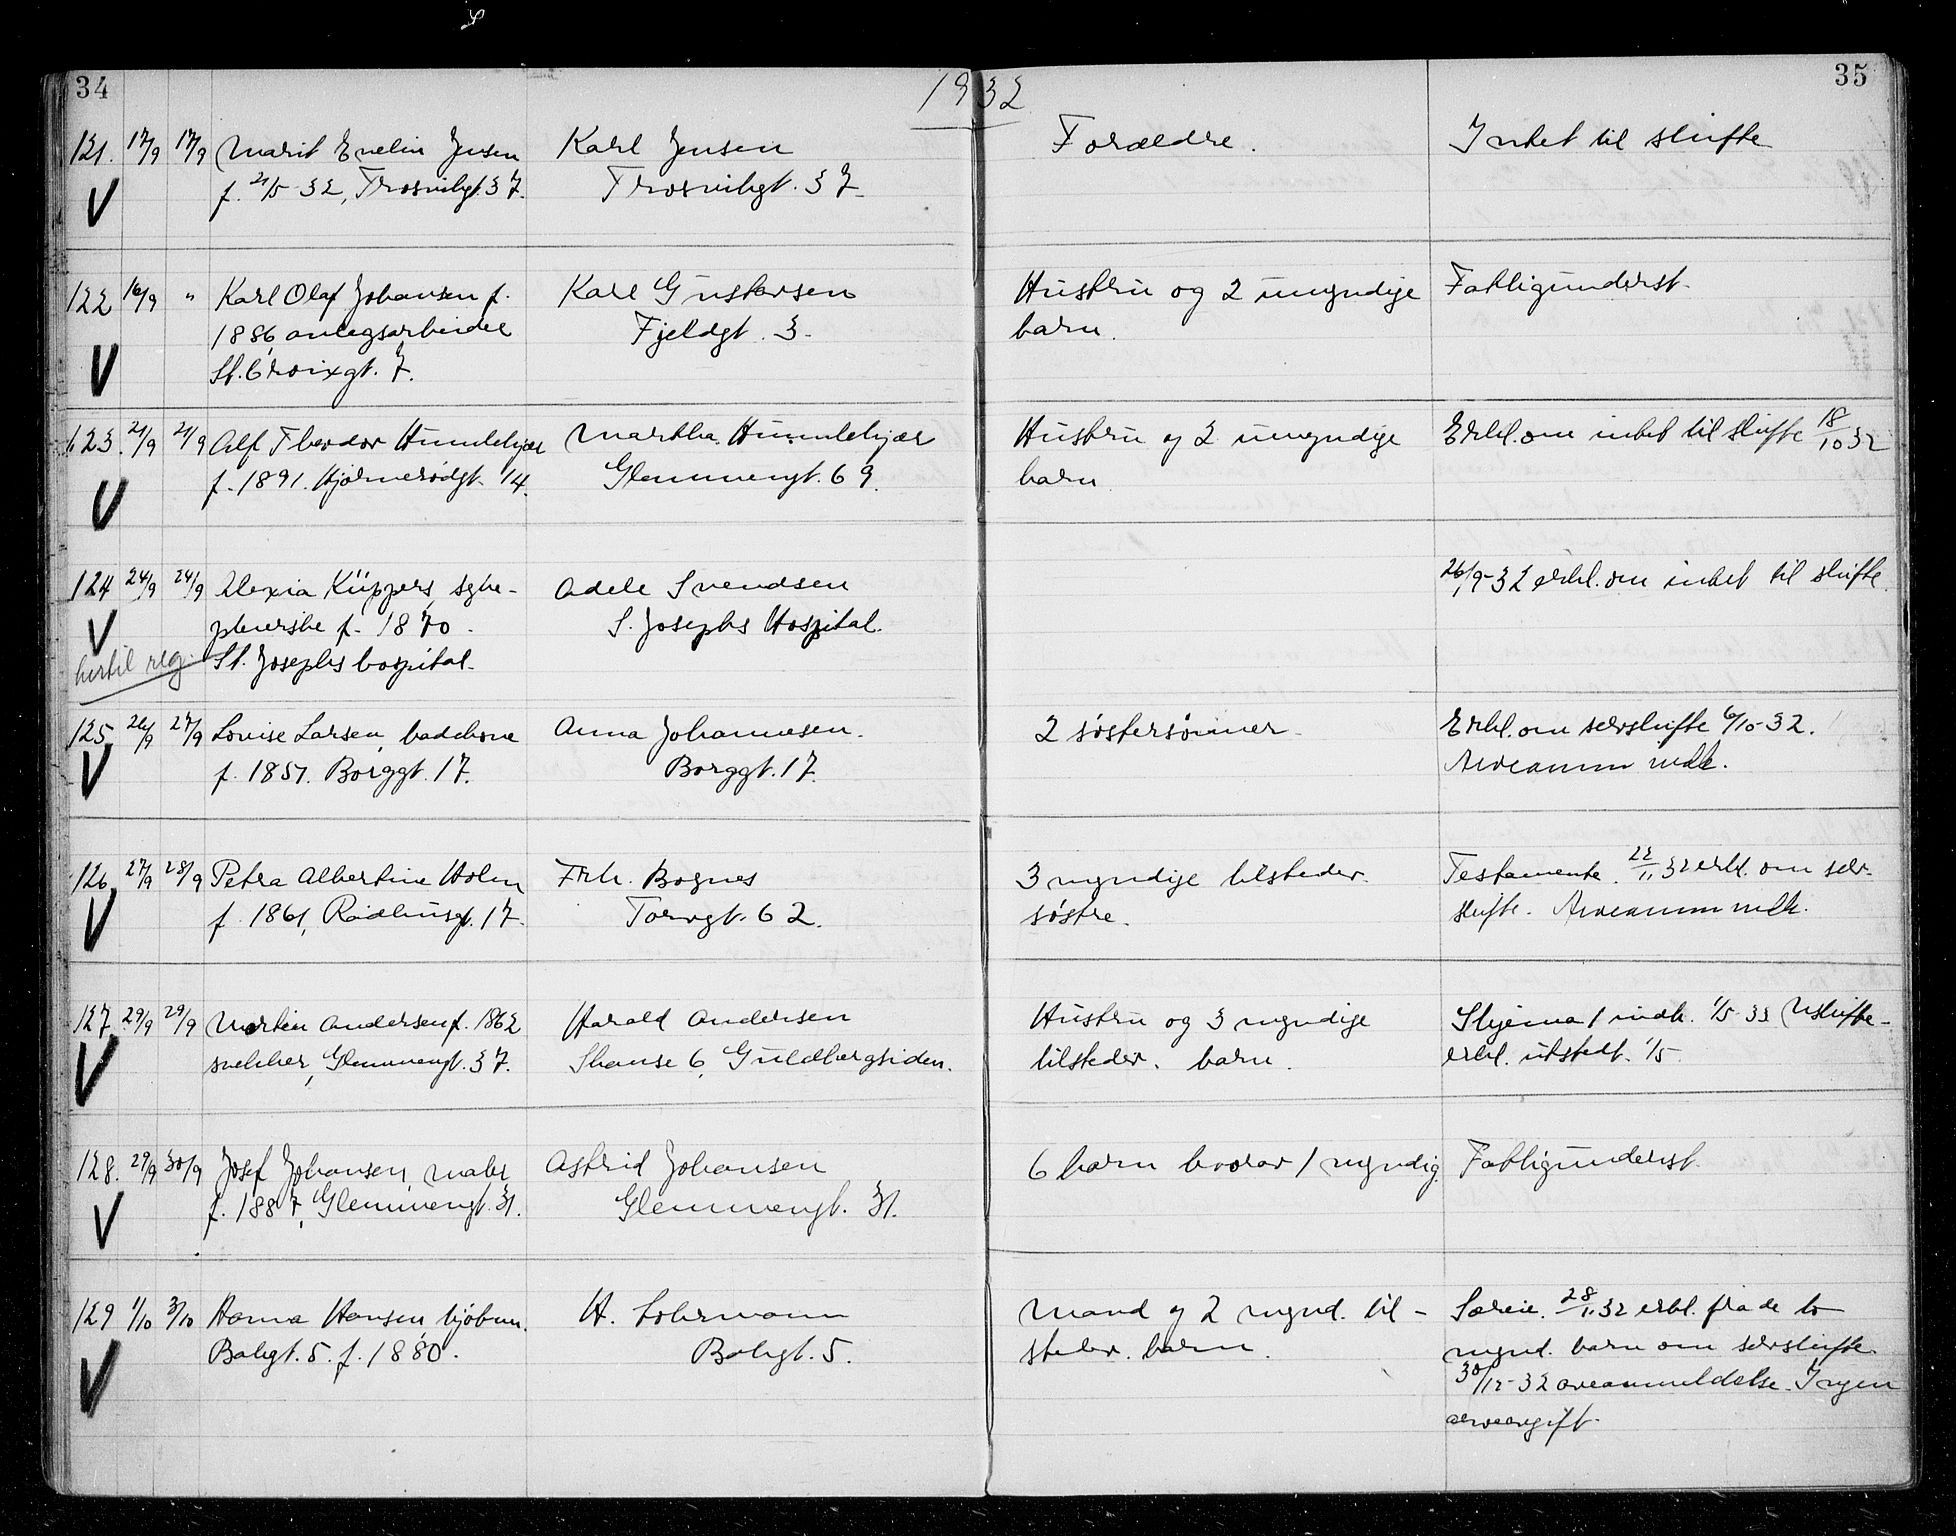 34
1932
35
121. 17/9 17/9 Marit Evelin Jensen Karl Jensen Forældre. Intet til skifte
f. 21/5-32, Trosvikgt. 37. Trosvikgt. 37.
122 16/9 " Karl Olaf Johansen f. Karl Gustavsen Hustru og 2 umyndige Fattigunderst.
1886, anlegsarbeider Fjeldgt. 3. barn.
St. Croixgt. 7.
123. 21/9 21/9 Alf Theodor Humlekjær Martha Humlekjær Hustru og 2 umyndige Erkl. om intet til skifte 18/10 32
f. 1891. Hjørnerødgt. 14. Glemmengt. 69. barn
124 24/9 24/9 Alexia Küppers, syke- Adele Svendsen 26/9-32 erkl. om intet til skifte.
pleierske f. 1870. S. Josephs Hospital.
hertil reg. St. Josephs hospital.
125. 26/9 27/9 Lovise Larsen, badekone Anna Johannesen. 2 søstersønner. Erkl. om særskifte 6/10-32.
f. 1851. Borggt. 17. Borggt. 17. Arveanm indk.
126. 27/9 28/9 Petra Albertine Holm Frk. Bognes 3 myndige tilsteder. Testamente. 22/11 32 erkl. om sær-
f. 1861, Rådhusgt. 17. Torvgt. 62. søstre. skifte. Arveanm indk.
127. 29/9 29/9 Martin Andersen f. 1862 Harald Andersen Hustru og 3 myndige Skjema 1 indk. 1/5-33 Uskifte-
snekker, Glemmengt. 37. Skanse 6, Guldbergsiden. tilsteder. barn. erkl. utstedt. 1/5.
128. 29/9 30/9 Josef Johansen, maler Astrid Johansen 6 barn hvorav 1 myndig. Fattigunderst.
f. 1887, Glemmengt. 31. Glemmengt. 31.
129 1/10 3/10 Hanna Hansen, kjøbm. H. Lohrmann Mand og 2 mynd. til- Særeie. 28/11 32 erkl. fra de to
Bakgt. 5. f. 1880. Bakgt. 5. stedv. barn. mynd. barn om særskifte
30/12-32 arveanmeldelse. Ingen
arveavgift.